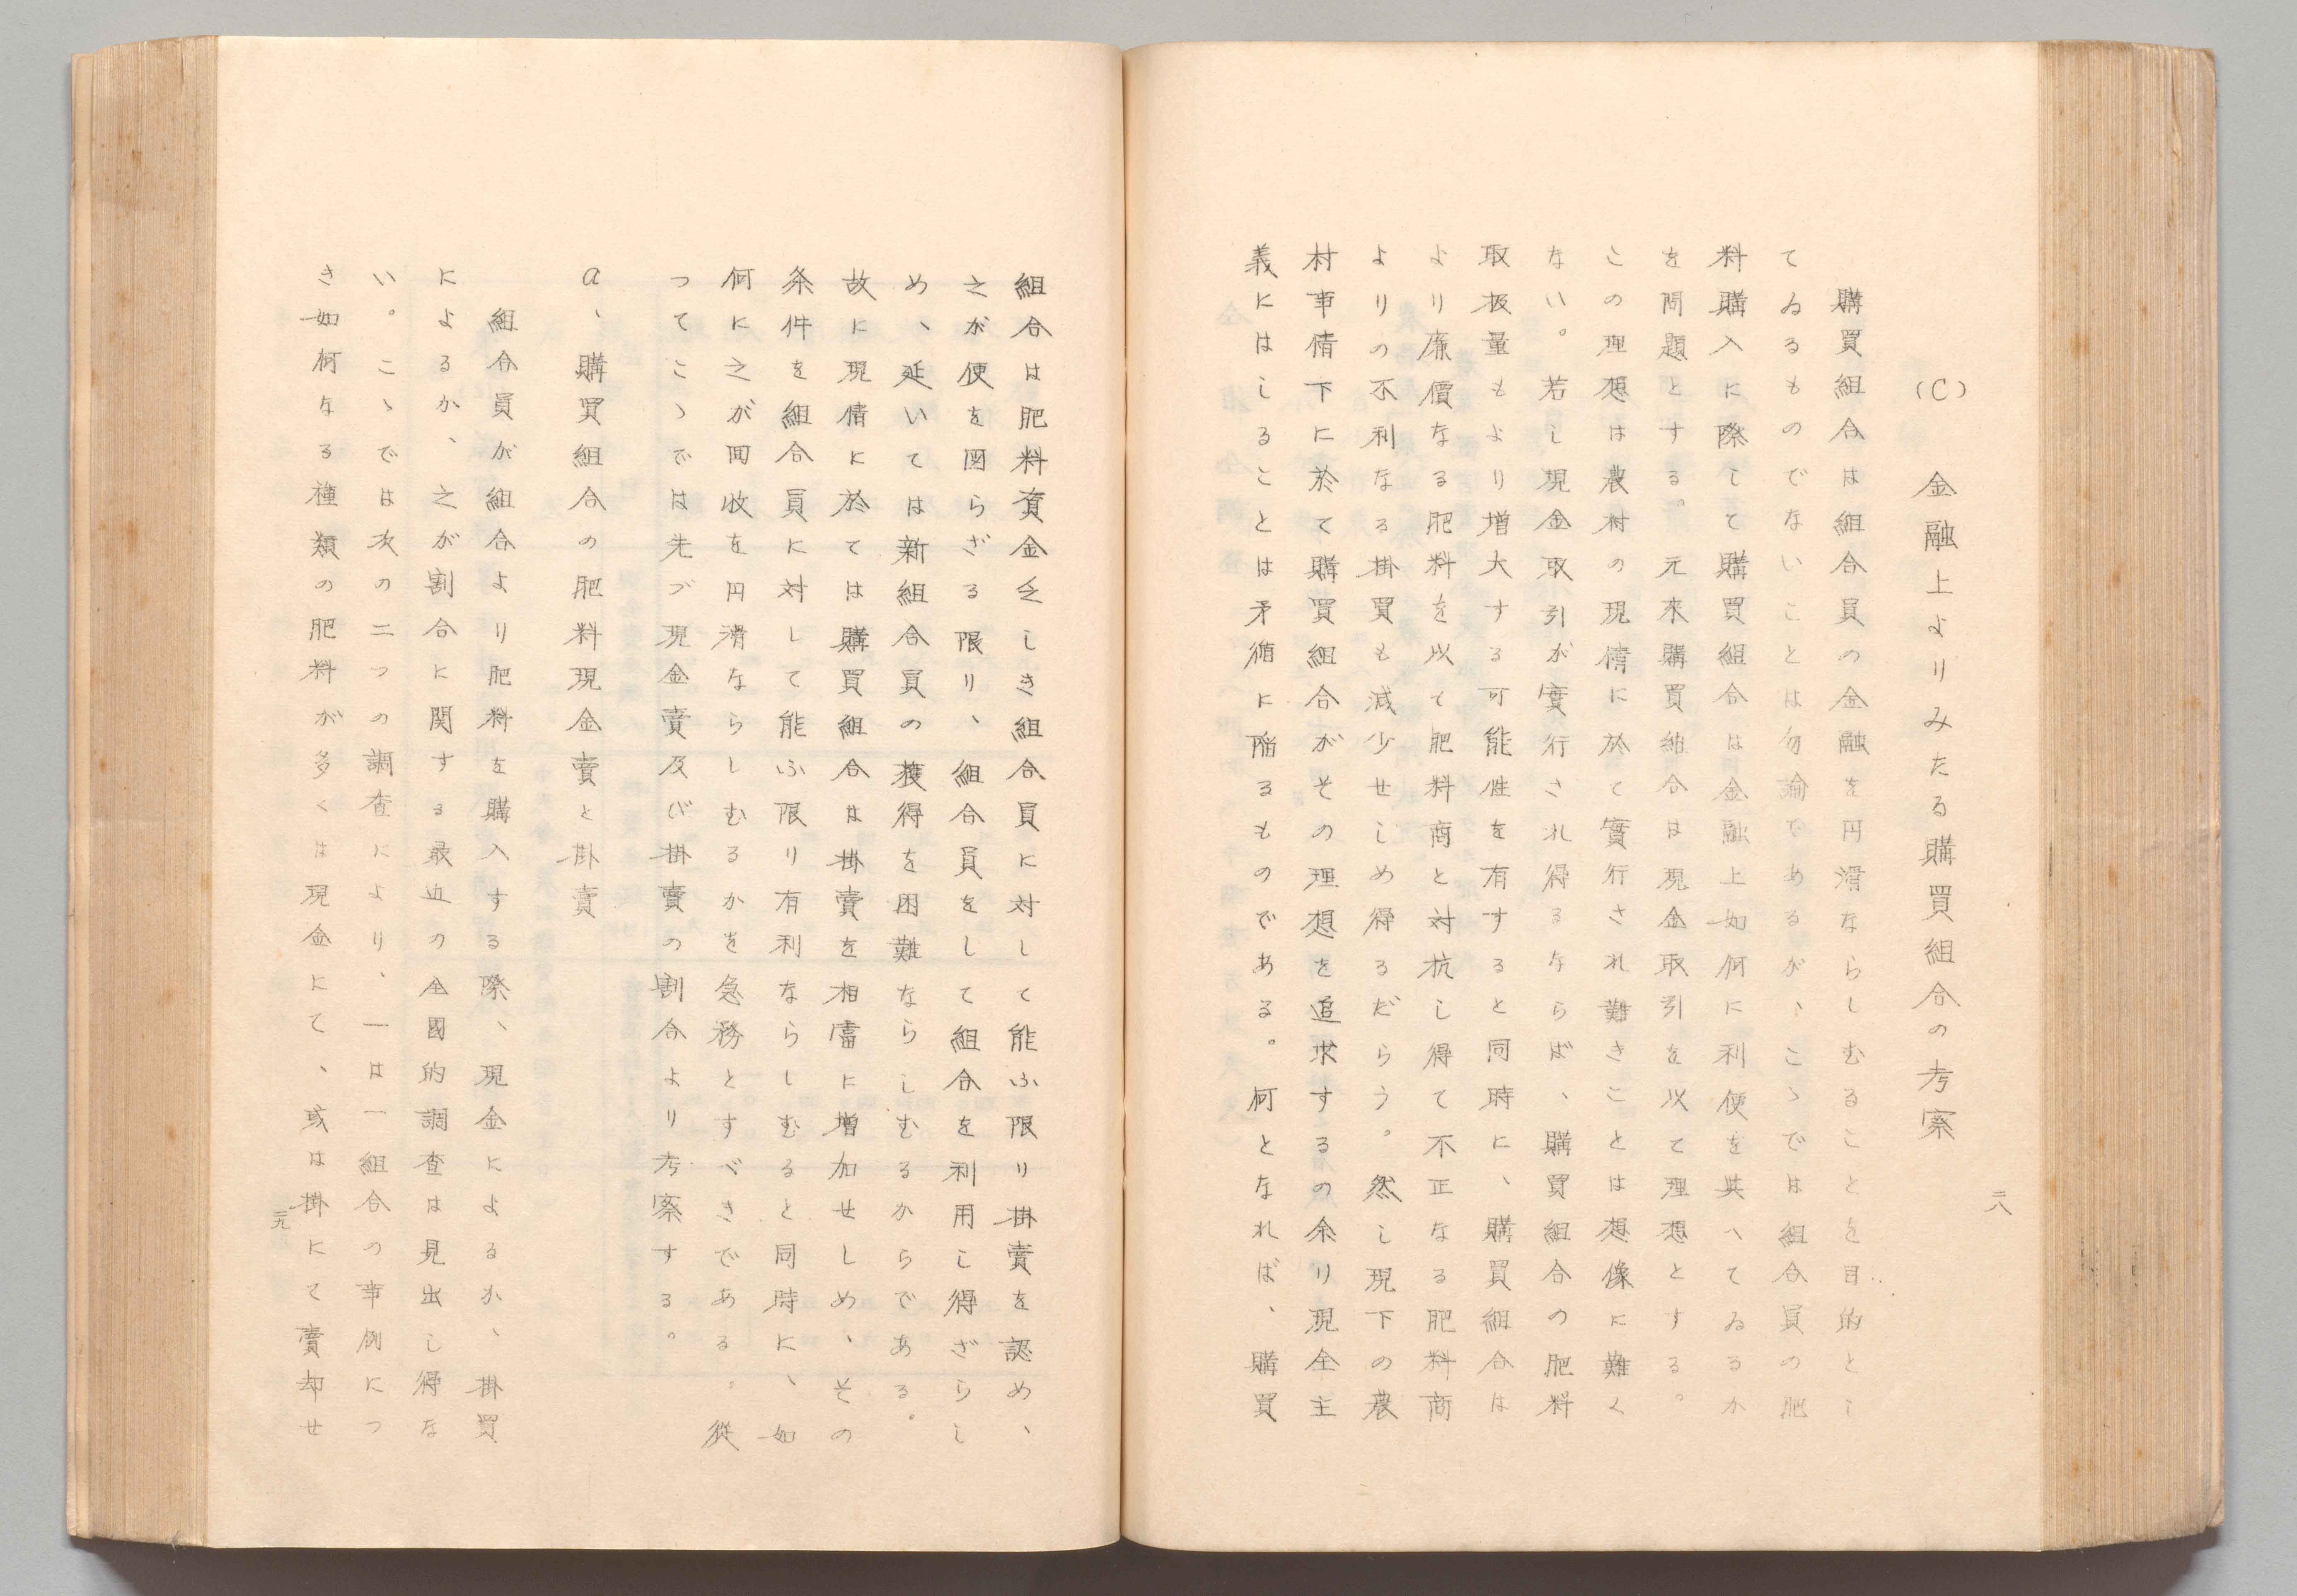 (C) 金融上よりみたる購買組合の考察
購買組合は組合員の金融を円滑ならしむることを目的とし
てゐるものでないことは勿論であるが、こゝでは組合員の肥
料購入に際して購買組合は金融上如何に利便を其へてゐるか
を問題とする。元来購買組合は現金取引を以て理想とする。
この理想は農村の現情に於て實行され難きことは想像に難く
ない。若し現金取引が實行され得るならば、購買組合の肥料
取扱量もより増大する可能性を有すると同時に、購買組合は
より廉價なる肥料を以て肥料商と対抗し得て不正なる肥料商
よりの不利なる掛買も減少せしめ得るだらう。然し現下の農
村事情下に於て購買組合がその理想を追求するの余り現金主
義にはしることは矛循に陥るものである。何となれば、購買
二八
組合は肥料資金乏しき組合員に対して能ふ限り掛賣を認め、
之が便を図らざる限り、組合員をして組合を利用し得ざらし
め、延いては新組合員の獲得を困難ならしむるからである。
故に現情に於ては購買組合は掛賣を相當に増加せしめ、その
条件を組合員に対して能ふ限り有利ならしむると同時に、如
何に之が回收を円滑ならしむるかを急務とすべきである。從
つてこゝでは先づ現金賣及び掛賣の割合より考察する。
a、購買組合の肥料現金賣と掛賣
組合員が組合より肥料を購入する際、現金によるか、掛買
によるか、之が割合に関する最近の全國的調査は見出し得な
い。こゝでは次の二つの調査により、一は一組合の事例につ
き如何なる種類の肥料が多くは現金にて、或は掛にて賣却せ
二九